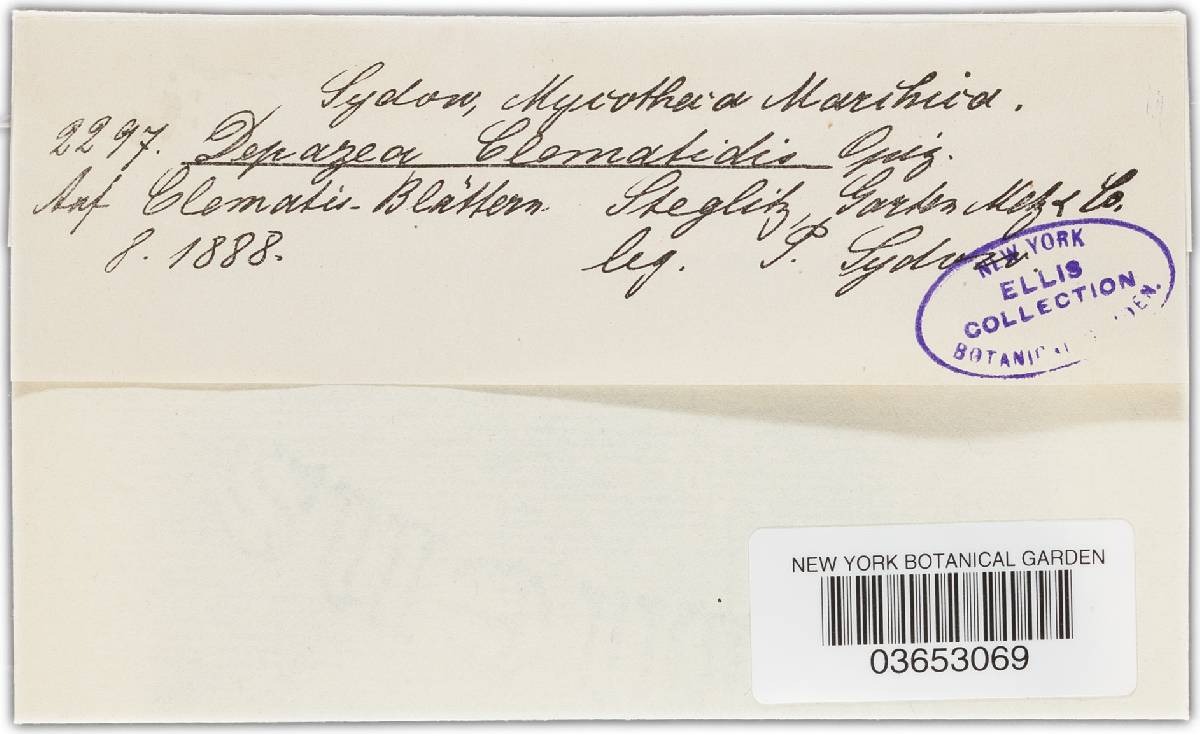 Sydow, Mycotheca Marchica.
2297. Depazea Clematidis
Auf Clematis-Blättern. Steglitz, Garten Metz & Co.
8. 1888. leg. P. Sydow.
NEW YORK
ELLIS
COLLECTION
BOTANICAL
NEW YORK BOTANICAL GARDEN
03653069